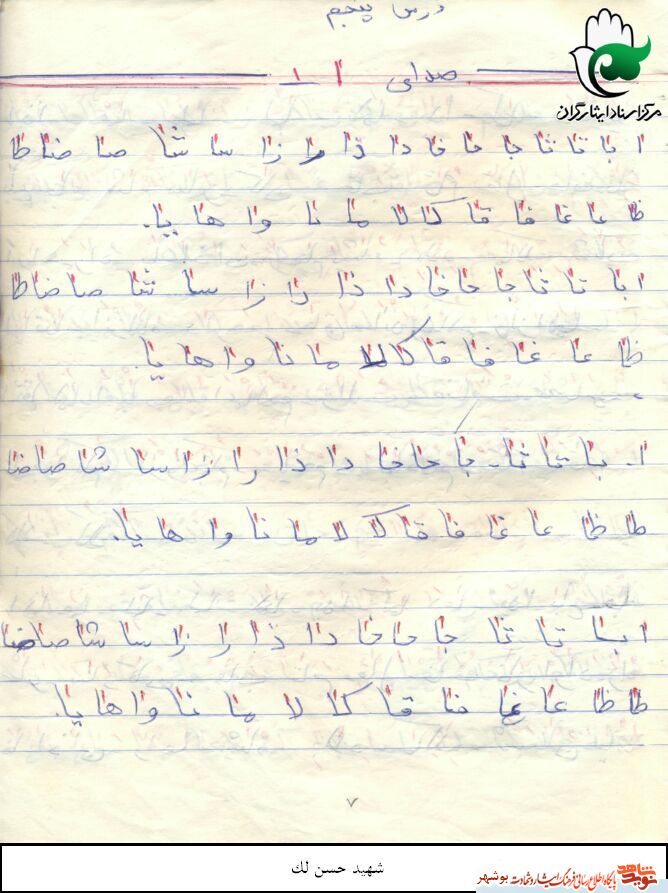 درس پنجم
صدای ا ـا
مرکز اسناد ایثارگران
ا با تا ثا جا حا خا دا ذا را زا سا شا صا ضا طا
ظا عا غا فا قا کا لا ما نا وا ها یا.
ا با تا ثا جا حا خا دا ذا را زا سا شا صا ضا طا
ظا عا غا فا قا کا لا ما نا وا ها یا.
ا. با تا ثا. جا حا خا دا ذا را زا سا شا صا ضا
طا ظا عا غا فا قا کا لا ما نا وا ها یا.
ا با تا ثا جا حا خا دا ذا را زا سا شا صا ضا
طا ظا عا غا فا قا کا لا ما نا وا ها یا.
۷
شهید حسن لك
نوید شاهد پایگاه اطلاع رسانی فرهنگ ایثار و شهادت بوشهر